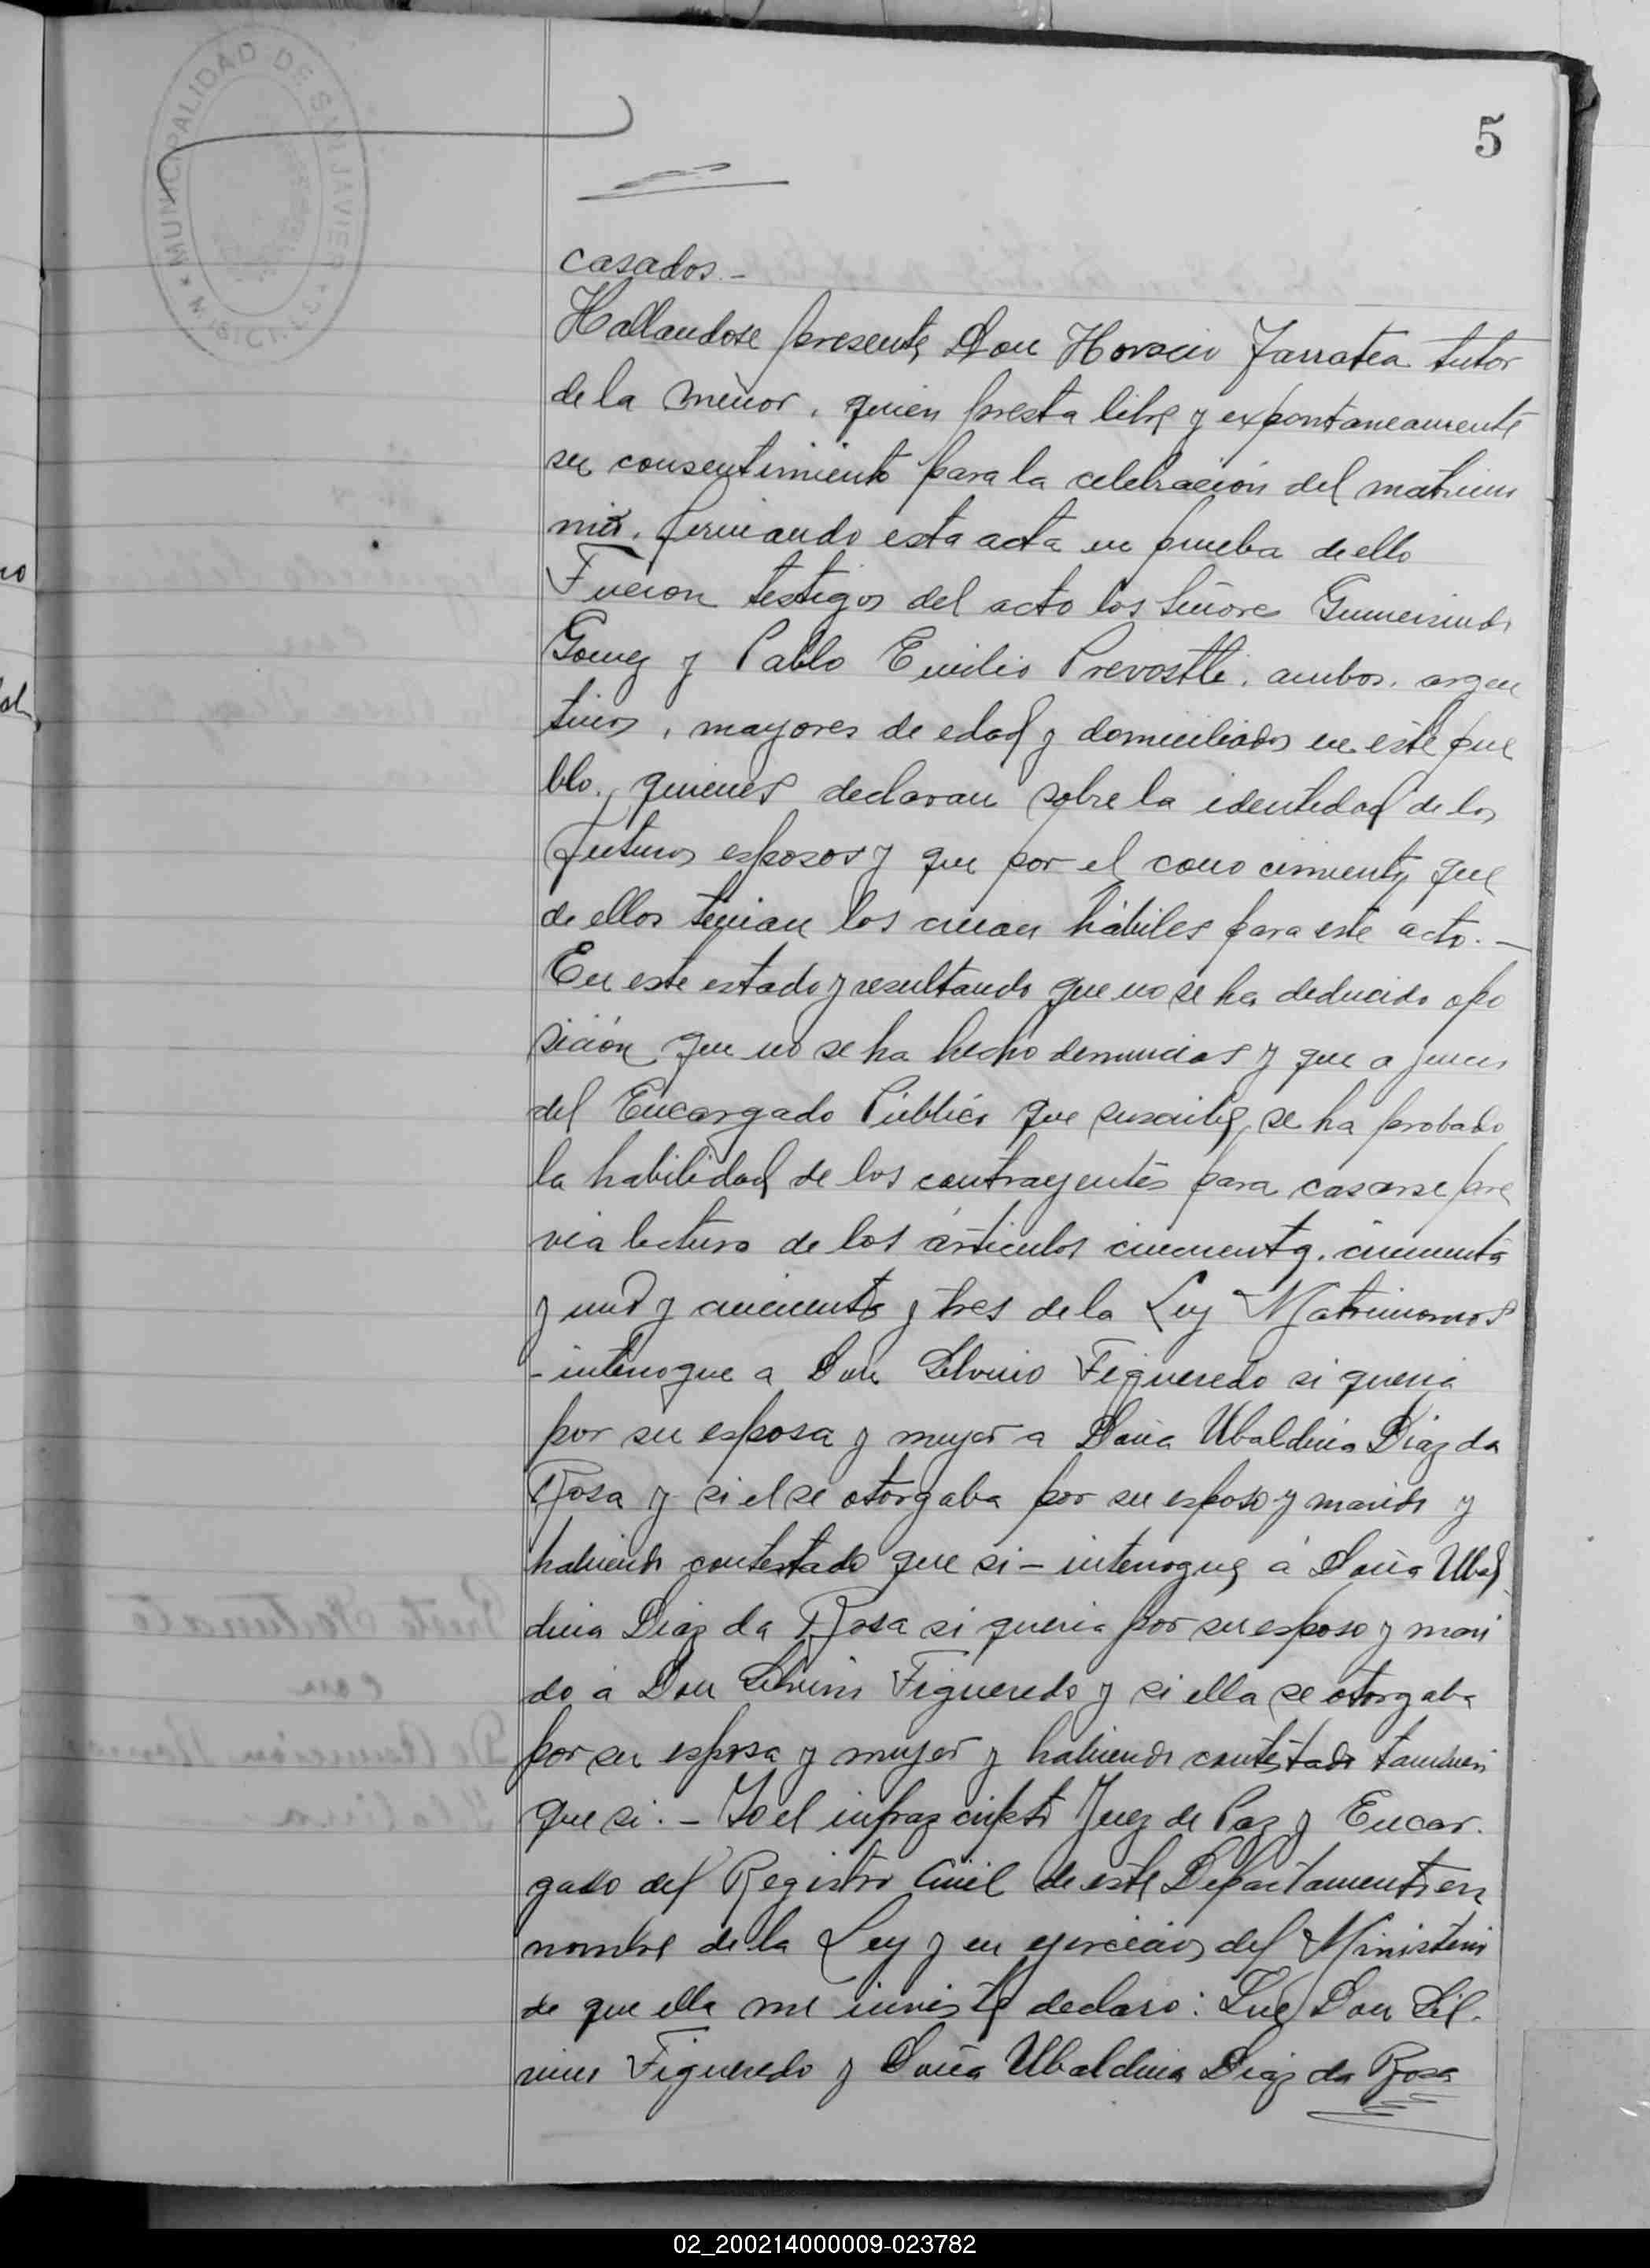 5
MUNICIPALIDAD DE SAN JAVIER
MISIONES
casados.-
Hallandose presente Don Horacio Jarratea tutor
de la menor, quien presta libre y expontaneamente
su consentimiento para la celebración del matrimo
nio. firmando esta acta en prueba de ello
Fueron testigos del acto los Señores Gumersindo
Gomez y Pablo Emilio Prevostti, ambos, argen
tinos, mayores de edad y domiciliados en este pue
blo, quienes declaran sobre la identidad de los
futuros esposos y que por el conocimiento que
de ellos tenian los creian hábiles para este acto.-
En este estado y resultando que no se ha deducido opo
sición que no se ha hecho denuncias y que a juicio
del Encargado Público que suscribe, se ha probado
la habilidad de los contrayentes para casarse pre
via lectura de los articulos cincuenta, cincuenta
y uno y cincuenta y tres de la Ley Matrimonios
-interrogue a Don Silvino Figueredo si queria
por su esposa y mujer a Doña Ubaldina Diaz da
Rosa y si el se otorgaba por su esposo y marido y
habiendo contestado que si - interrogue á Doña Ubal
dina Diaz da Rosa si queria por su esposo y mari
do á Don Silvino Figueredo y si ella se otorgaba
por su esposa y mujer y habiendo contestado tambien
que si.- Yo el infrascripto Juez de Paz y Encar.
gado del Registro Civil de este Departamento en
nombre de la Ley y en ejercicio del Ministerio
de que ella me inviste declaro: Que Don Sil.
vino Figueredo y Doña Ubaldina Diaz da Rosa
02_200214000009-023782